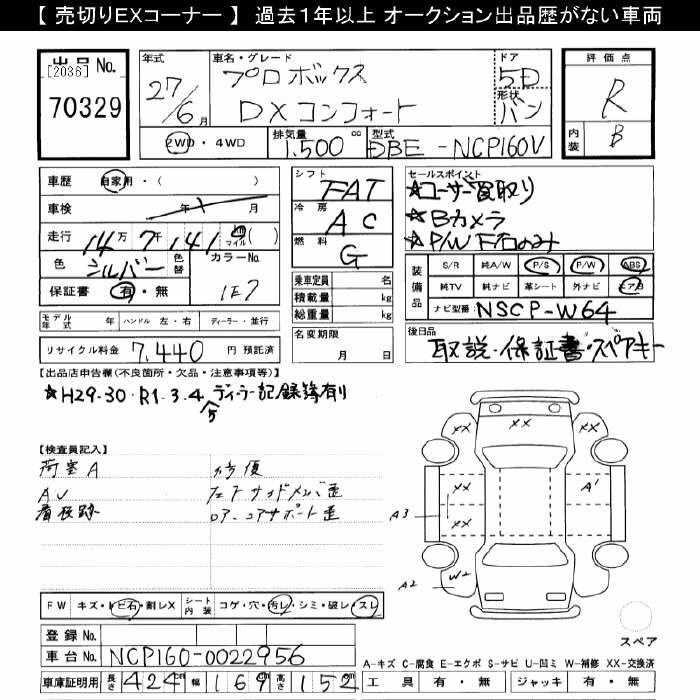 【 売切りEXコーナー 】 過去1年以上 オークション出品歴がない車両
出品 No.
[2036]
70329
年式
27/6月
車名・グレード
プロボックス
DXコンフォート
ドア
5D
形状
バン
評価点
R
内装
B
2WD・4WD
排気量
1,500 cc
型式
DBE-NCP160V
車歴 自家用・( )
車検 年 月
走行 14万 7千 141
km マイル ( )
色 シルバー
色替
カラーNo.
1E7
保証書 有・無
モデル年式 年 ハンドル 左・右 ディーラー・並行
リサイクル料金 7,440 円 預託済
シフト
FAT
冷房
AC
燃料
G
乗車定員 名
積載量 kg
総重量 kg
名変期限
月 日
セールスポイント
☆ユーザー買取り
☆Bカメラ
☆P/W F右のみ
装備品
S/R 純A/W P/S P/W ABS
純TV 純ナビ 革シート 外ナビ エアB
ナビ型番 NSCP-W64
後日品
取説・保証書・スペアキー
【出品店申告欄(不良箇所・欠品・注意事項等)】
☆H29・30・R1・3・4 ディーラー記録簿有り
5
【検査員記入】
荷室A
AU
看板跡
修復
コアサポート歪
XX XX XX
XX
XX
A1
A3
A2 W2
FW キズ・トビ石・割レX
シート内装 コゲ・穴・汚レ・シミ・破レ・スレ
登録 No.
車台 No. NCP160-0022956
車庫証明用 長さ 424cm 幅 169cm 高さ 152cm
スペア
A-キズ C-腐食 E-エクボ S-サビ U-凹ミ W-補修 XX-交換済
工具 有・無 ジャッキ 有・無